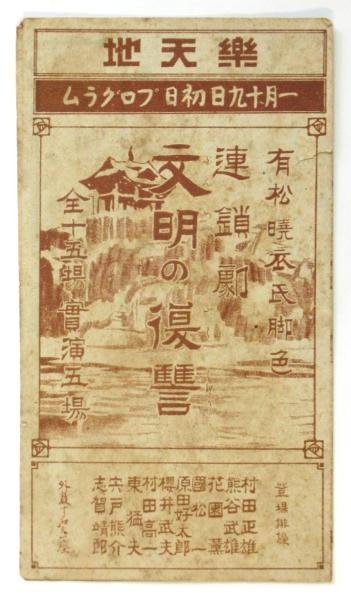 樂天地
一月十九日初日プログラム
有松曉衣氏脚色
連鎖劇
文明の復讐
全十五場實演五場
登場俳優
村田正雄
熊谷武雄
花園薫
國松一
原田好太郎
櫻井武夫
村田高一
東猛夫
宍戸熊介
志賀靖郎